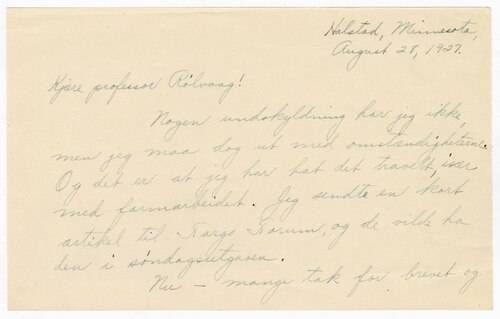 Halstad, Minnesota,
August 28, 1927.
Kjære professor Rölvaag!
Nogen undskyldning har jeg ikke,
men jeg maa dog ut med omstændigheterne.
Og det er at jeg har hat det travelt, især
med farmarbeidet. Jeg sendte en kort
artikel til Fargo Forum, og de vilde ha
den i söndagsutgaven.
Nu — mange tak for brevet og